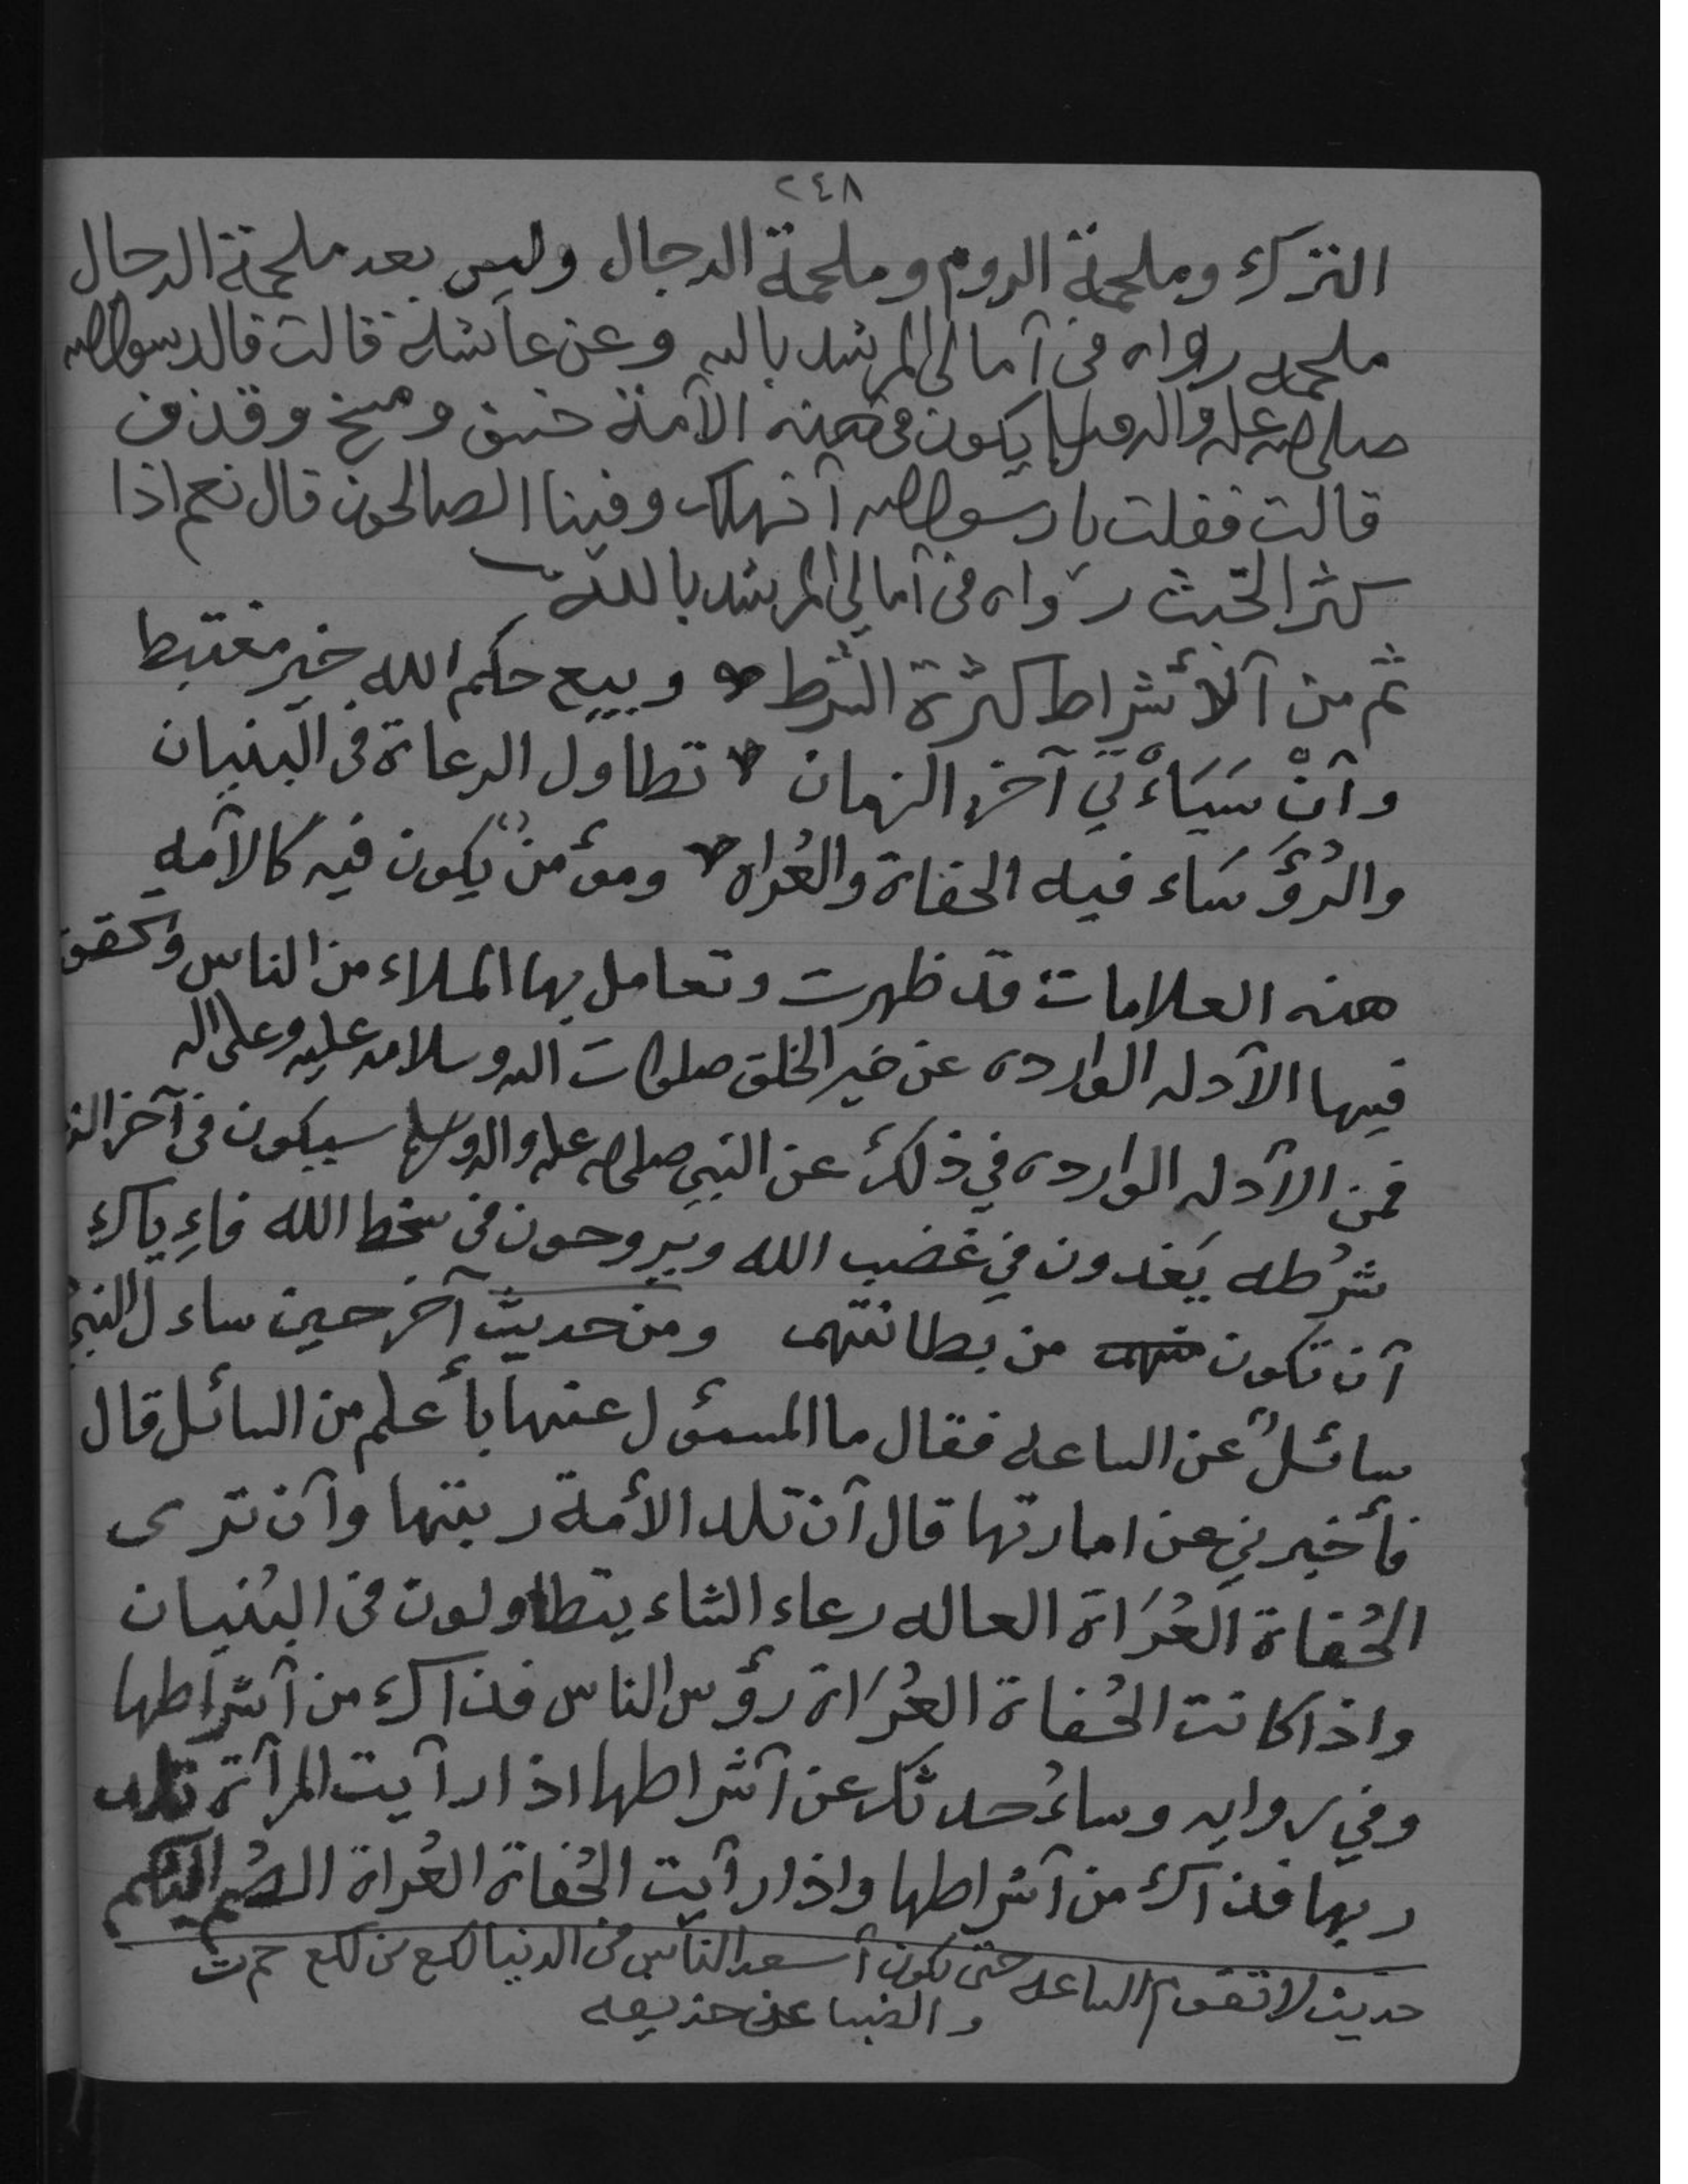 ٢٤٨
الترك وملحمة الروم وملحمة الدجال وليس بعد ملحمة الدجال
ملحمه رواه في آمالي المرشد بالله وعن عائشة قالت قال رسول الله
صلى الله عليه وآله وسلم يكون في هذه الآمة خسف ومسخ وقذف
قالت فقلت يا رسول الله آنهلك وفينا الصالحون قال نعم اذا
كثر الخبث رواه في آمالي المرشد بالله
ثم من آلأشراط كثرة الشرط وبيع حكم الله خير مغتبط
وآنْ سَيَاءْتي آخر الزمان تطاول الرعاة في البنيان
والرُؤَسَاء فيه الحفاة والعُراه ومؤمنٌ يكون فيه كالآمه
هذه العلامات قد ظهرت وتعامل بها الملاء من الناس وتحقق
فيها الآدله الوارده عن خير الخلق صلوات الله وسلامه عليه وعلى اله
فمن الآدله الوارده في ذلك عن النبي صلى الله عليه وآله وسلم سيكون في آخر
شرُطه يَغدون في غضب الله ويروحون في سخط الله فاءِياك
آن تكون من بطانتهم ومن حديث آخر حين ساءل النبي
سائلٌ عن الساعه فقال ما المسؤل عنها بأعلم من السائل قال
فأخبرني عن امارتها قال آن تلد الأمة ربتها وآن ترى
الحُفاة العُرَاة العاله رعاء الشاء يتطاولون في البُنيان
واذا كانت الحُفاة العُرَاة رؤس الناس فذاك من آشراطها
وفي روايه وساءُحدثك عن آشراطها اذا رآيت المرآة تلد
ربها فذاك من آشراطها واذا رآيت الحُفاة العُراة الصُم البكم
حديث لا تقوم الساعه حتى يكون آسعد الناس في الدنيا لكع بن لكع حم ت
والضيا عن حذيفه